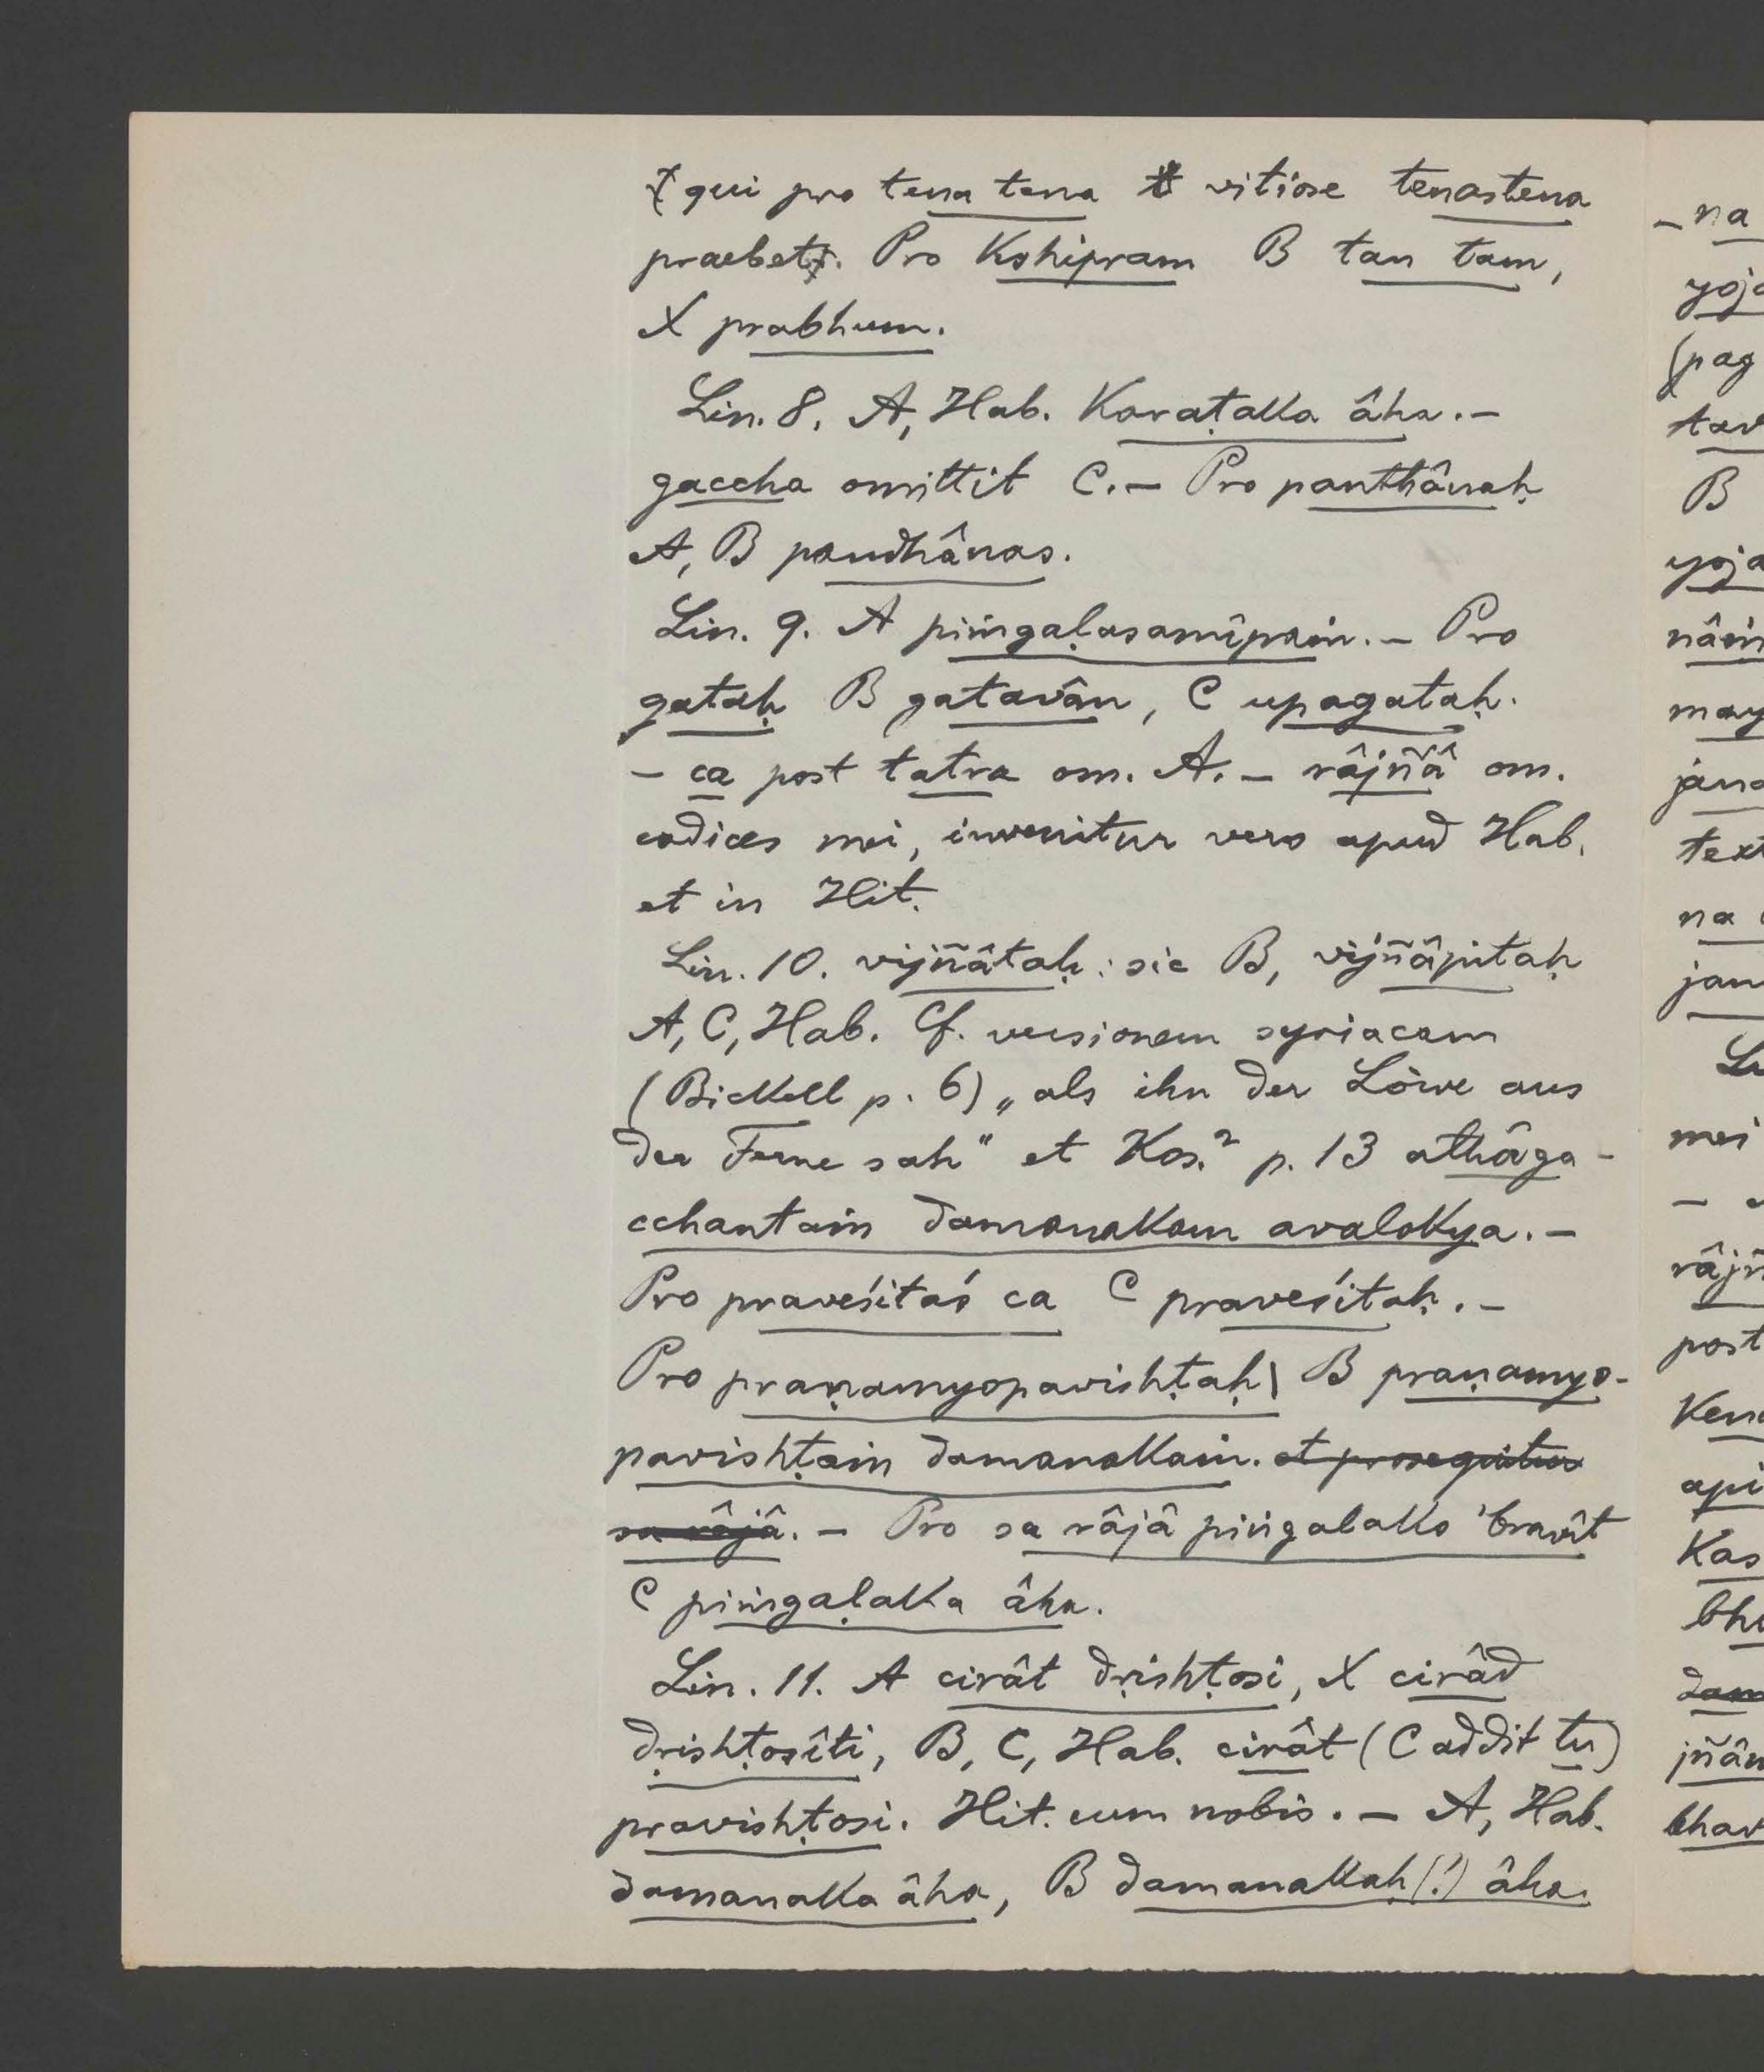 qui pro tena tena vitiose tenastena
praebet. Pro kshipram B tan tam,
X prabhum.
Lin. 8. A, Hab. Karaṭaka âha. –
gaccha omittit C. – Pro panthânaḥ
A, B pandhânas.
Lin. 9. A piṁgaḷasamîpaṁ. – Pro
gataḥ B gatavân, C upagataḥ.
– ca post tatra om. A. – râjñâ om.
codices mei, invenitur vero apud Hab.
et in Hit.
Lin. 10. vijñâtaḥ: sic B, vijñâpitaḥ
A, C, Hab. Cf. versionem syriacam
(Bickell p. 6) „als ihn der Löwe aus
der Ferne sah" et Kos.² p. 13 athâga-
cchantaṁ damanakam avalokya. –
Pro praveśitaś ca C praveśitaḥ. –
Pro praṇamyopavishṭaḥ| B praṇamyo-
pavishṭaṁ damanakaṁ. et prosequitur
sa râjâ. – Pro sa râjâ piṅgalako 'bravît
C piṁgaḷaka âha.
Lin. 11. A cirât dṛishṭosi, X cirâd
dṛishṭosîti, B, C, Hab. cirât (C addit tu)
pravishṭosi. Hit. cum nobis. – A, Hab.
damanaka âha, B damanakaḥ(!) âha.
-na
yoja
(pag
tav
B
yoja
nâṁ
may
jana
text
na
jan
Li
mei
–
râjñ
post
Ken
api
Kas
bhu
dam
jñân
bhav